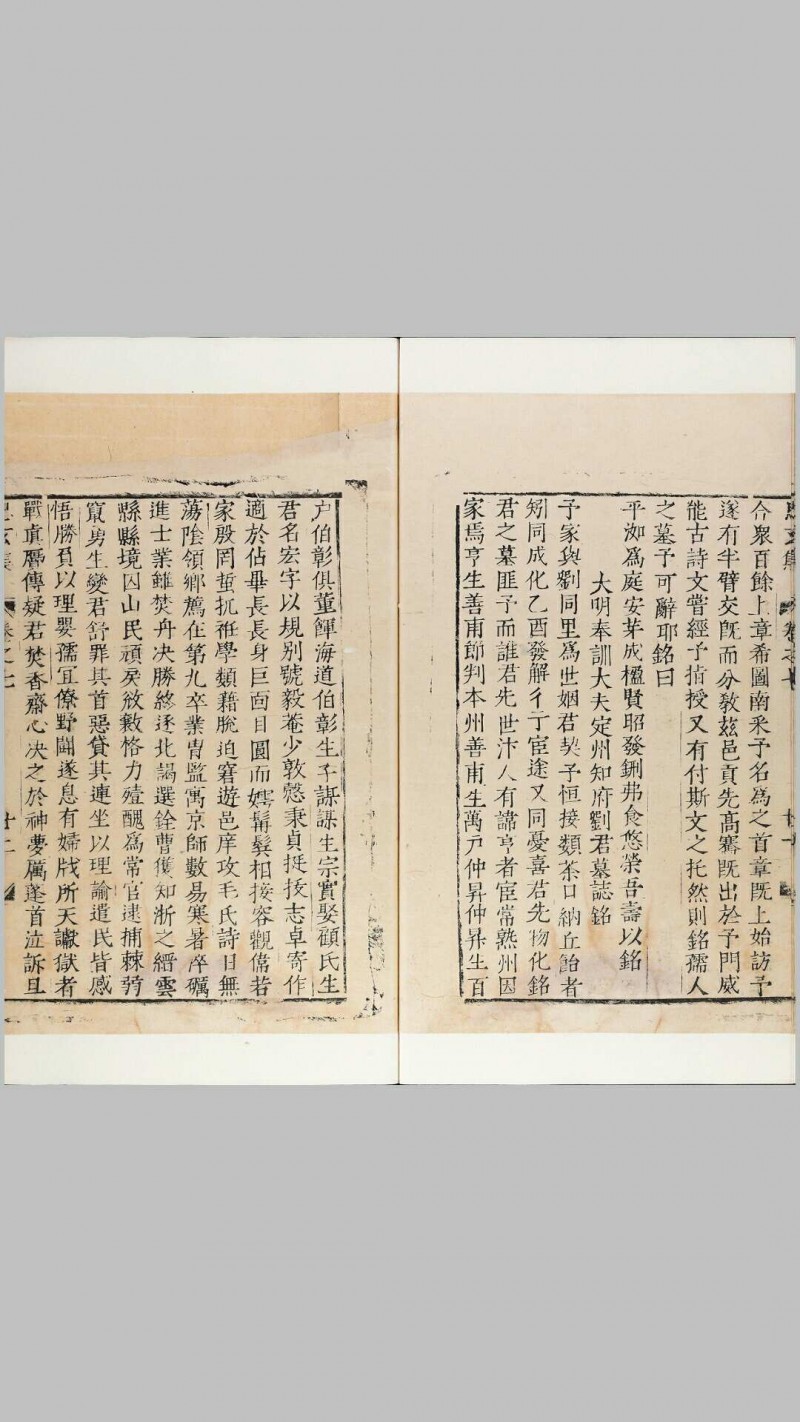 合衆百餘上章希圖南釆予名為之首章既上始訪予
遂有半臂交既而分敎兹邑貢先髙騫既出於予門威
能古詩文嘗經予指授又有付斯文之托然則銘孺人
之墓予可辭耶銘曰
平泖為庭安芽成楹賢昭發鉶弗食悠榮吾壽以銘
大明奉訓大夫定州知府劉君墓誌銘
予家與劉同里為世姻君契予恒接類茶口納丘飴者
矧同成化乙酉發解彳亍宦途又同憂喜君先物化銘
君之墓匪予而誰君先世汴人有諱亨者宦常熟州因
家焉亨生善甫節判本州善甫生萬戸仲昇仲昇生百
户伯彰俱董餫海道伯彰生子謙謙生宗實娶顧氏生
君名宏字以規别號毅菴少敦慤秉貞挺技志卓寄作
適於佔畢長長身巨面目圓而嫮髯鬂相接容觀偹若
家殷罔蚩扤袵學類藉脫迫窘遊邑庠攻毛氏詩日無
蕩陰領鄉薦在第九卒業胄監寓京師數易寒暑淬礪
進士業雖焚舟决勝終逐北謁選銓曹獲知浙之縉雲
縣縣境囚山民頑戾放數格力殪醜為常官逮捕棘莠
竄勇生變君舒罪其首惡貸其連坐以理諭遣民皆感
悟勝負以理嬰孺冝僚野鬪遂息有婦戕所天讞獄者
戰眞屬傳疑君焚香齋心决之於神夢厲蓬首泣訴旦
卷之七
十一
卷之七
十二